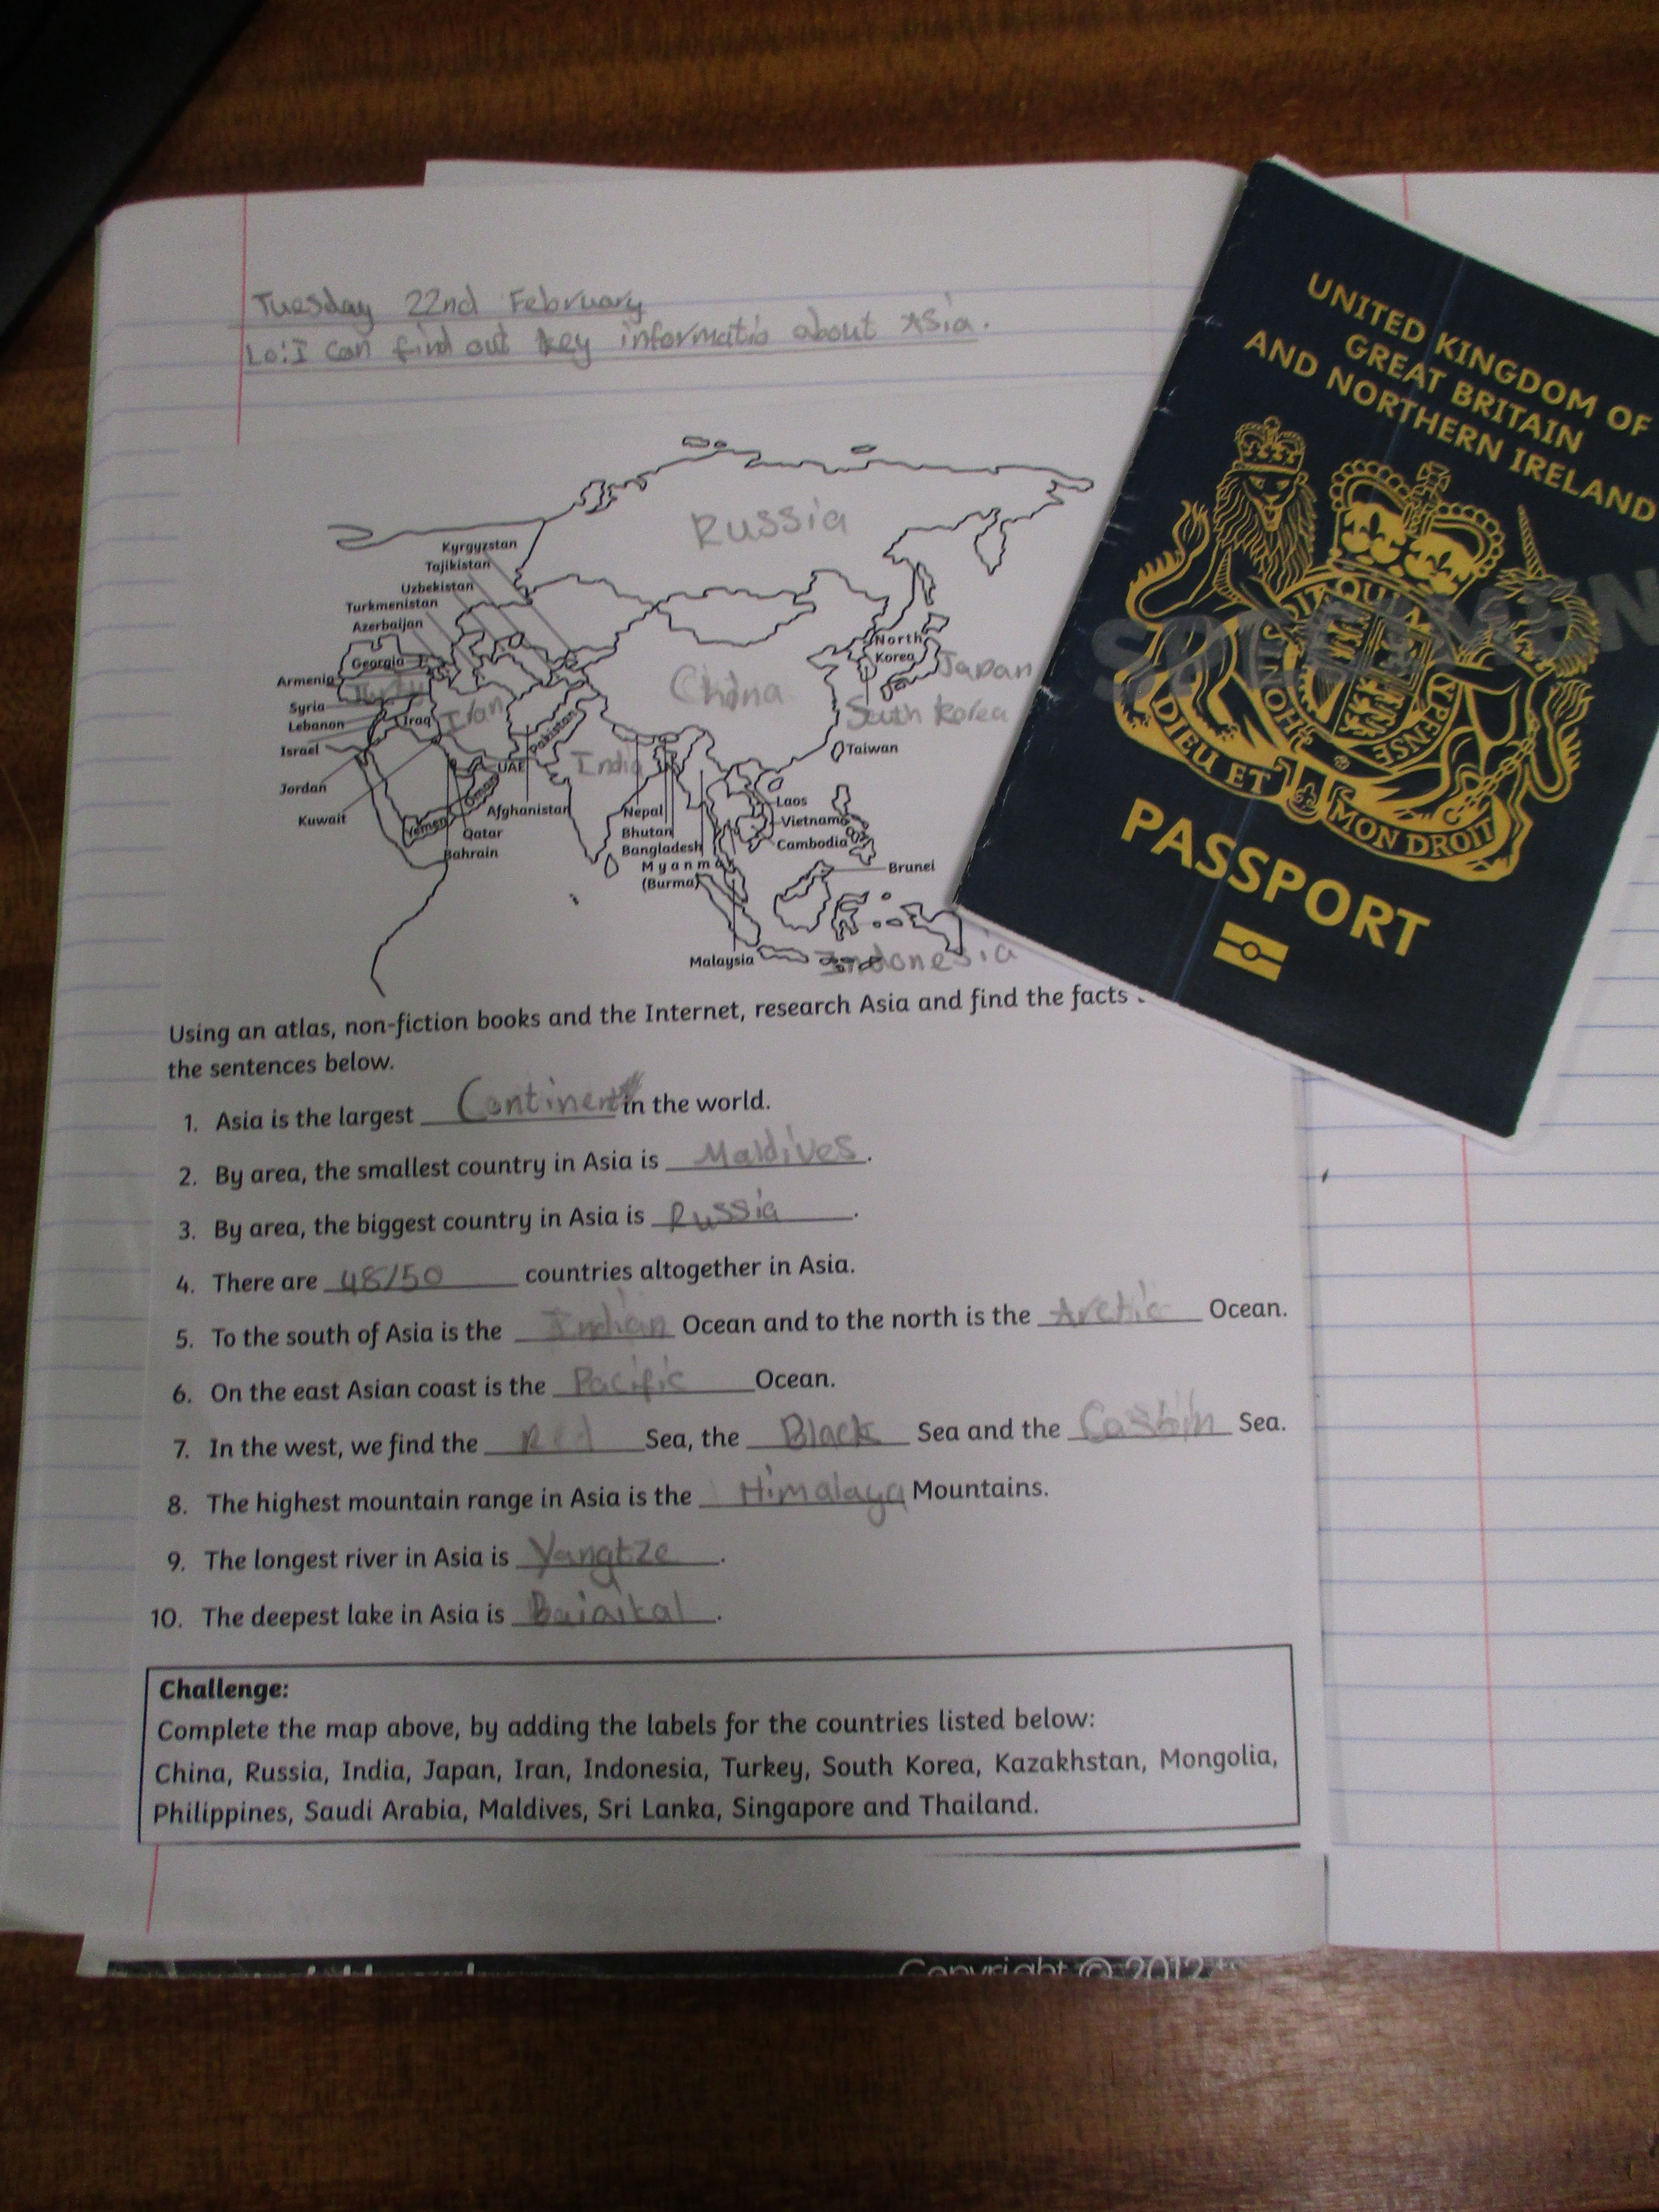 Tuesday 22nd February
Lo: I can find out key informatio about Asia.
Russia
Kyrgyzstan
Tajikistan
Uzbekistan
Turkmenistan
Azerbaijan
Georgia
Armenia
Turkey
Syria
Lebanon
Iraq
Iran
Israel
Jordan
Kuwait
Yemen
Oman
UAE
Qatar
Bahrain
Afghanistan
Pakistan
India
China
North
Korea
Japan
South Korea
Taiwan
Nepal
Bhutan
Bangladesh
Myanmar
(Burma)
Laos
Vietnam
Cambodia
Brunei
Malaysia
Indonesia
Using an atlas, non-fiction books and the Internet, research Asia and find the facts
the sentences below.
1. Asia is the largest Continent in the world.
2. By area, the smallest country in Asia is Maldives.
3. By area, the biggest country in Asia is Russia.
4. There are 48/50 countries altogether in Asia.
5. To the south of Asia is the Indian Ocean and to the north is the Arctic Ocean.
6. On the east Asian coast is the Pacific Ocean.
7. In the west, we find the Red Sea, the Black Sea and the Sea.
8. The highest mountain range in Asia is the Himalaya Mountains.
9. The longest river in Asia is Yangtze.
10. The deepest lake in Asia is Baiaikal.
Challenge:
Complete the map above, by adding the labels for the countries listed below:
China, Russia, India, Japan, Iran, Indonesia, Turkey, South Korea, Kazakhstan, Mongolia,
Philippines, Saudi Arabia, Maldives, Sri Lanka, Singapore and Thailand.
Copyright © 2012
UNITED KINGDOM OF
GREAT BRITAIN
AND NORTHERN IRELAND
SPECIMEN
HONI SOIT QUI MAL Y PENSE
DIEU ET MON DROIT
PASSPORT